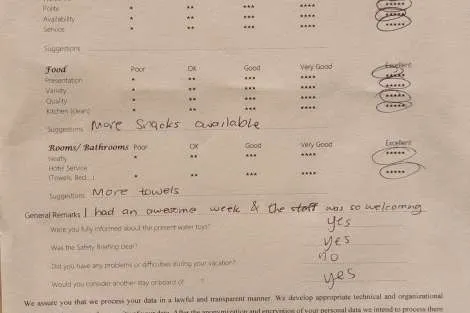 Polite * ** *** **** *****
Availability * ** *** **** *****
Service * ** *** **** *****
Suggestions
Food Poor OK Good Very Good Excellent
Presentation * ** *** **** *****
Variety * ** *** **** *****
Quality * ** *** **** *****
Kitchen (clean) * ** *** **** *****
Suggestions More Snacks available
Rooms/ Bathrooms Poor OK Good Very Good Excellent
Neatly * ** *** **** *****
Hotel Service
(Towels, Bed...) * ** *** **** *****
Suggestions More towels
General Remarks I had an awesome week & the staff was so welcoming
Were you fully informed about the present water toys? yes
Was the Safety Briefing clear? yes
Did you have any problems or difficulties during your vacation? no
Would you consider another stay onboard of yes
We assure you that we process your data in a lawful and transparent manner. We develop appropriate technical and organizational
After the anonymization and encryption of your personal data we intend to process them